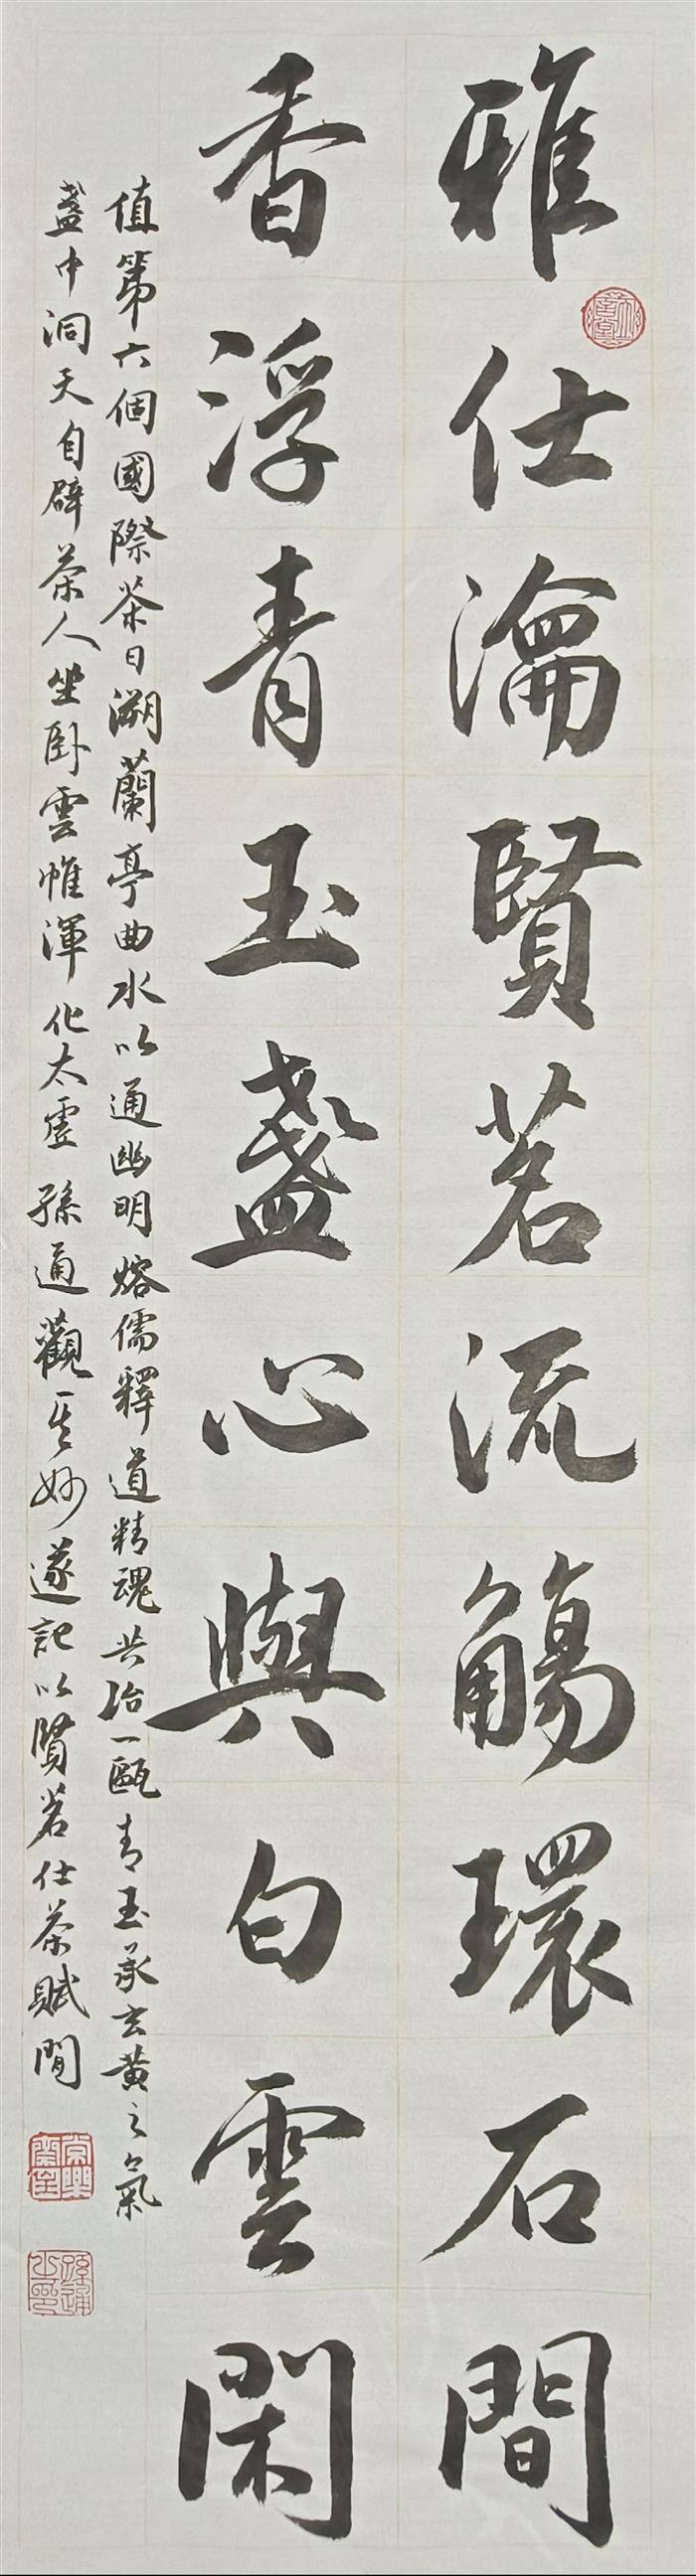 雅仕瀹賢茗流觴環石間
香浮青玉盞心與白雲閑
值第六個國際茶日溯蘭亭曲水以通幽明熔儒釋道精魂共冶一甌青玉承玄黃之氣
盞中洞天自辟茶人坐卧雲帷渾化太虛 孫通觀其妙遂記以賢茗仕茶賦間